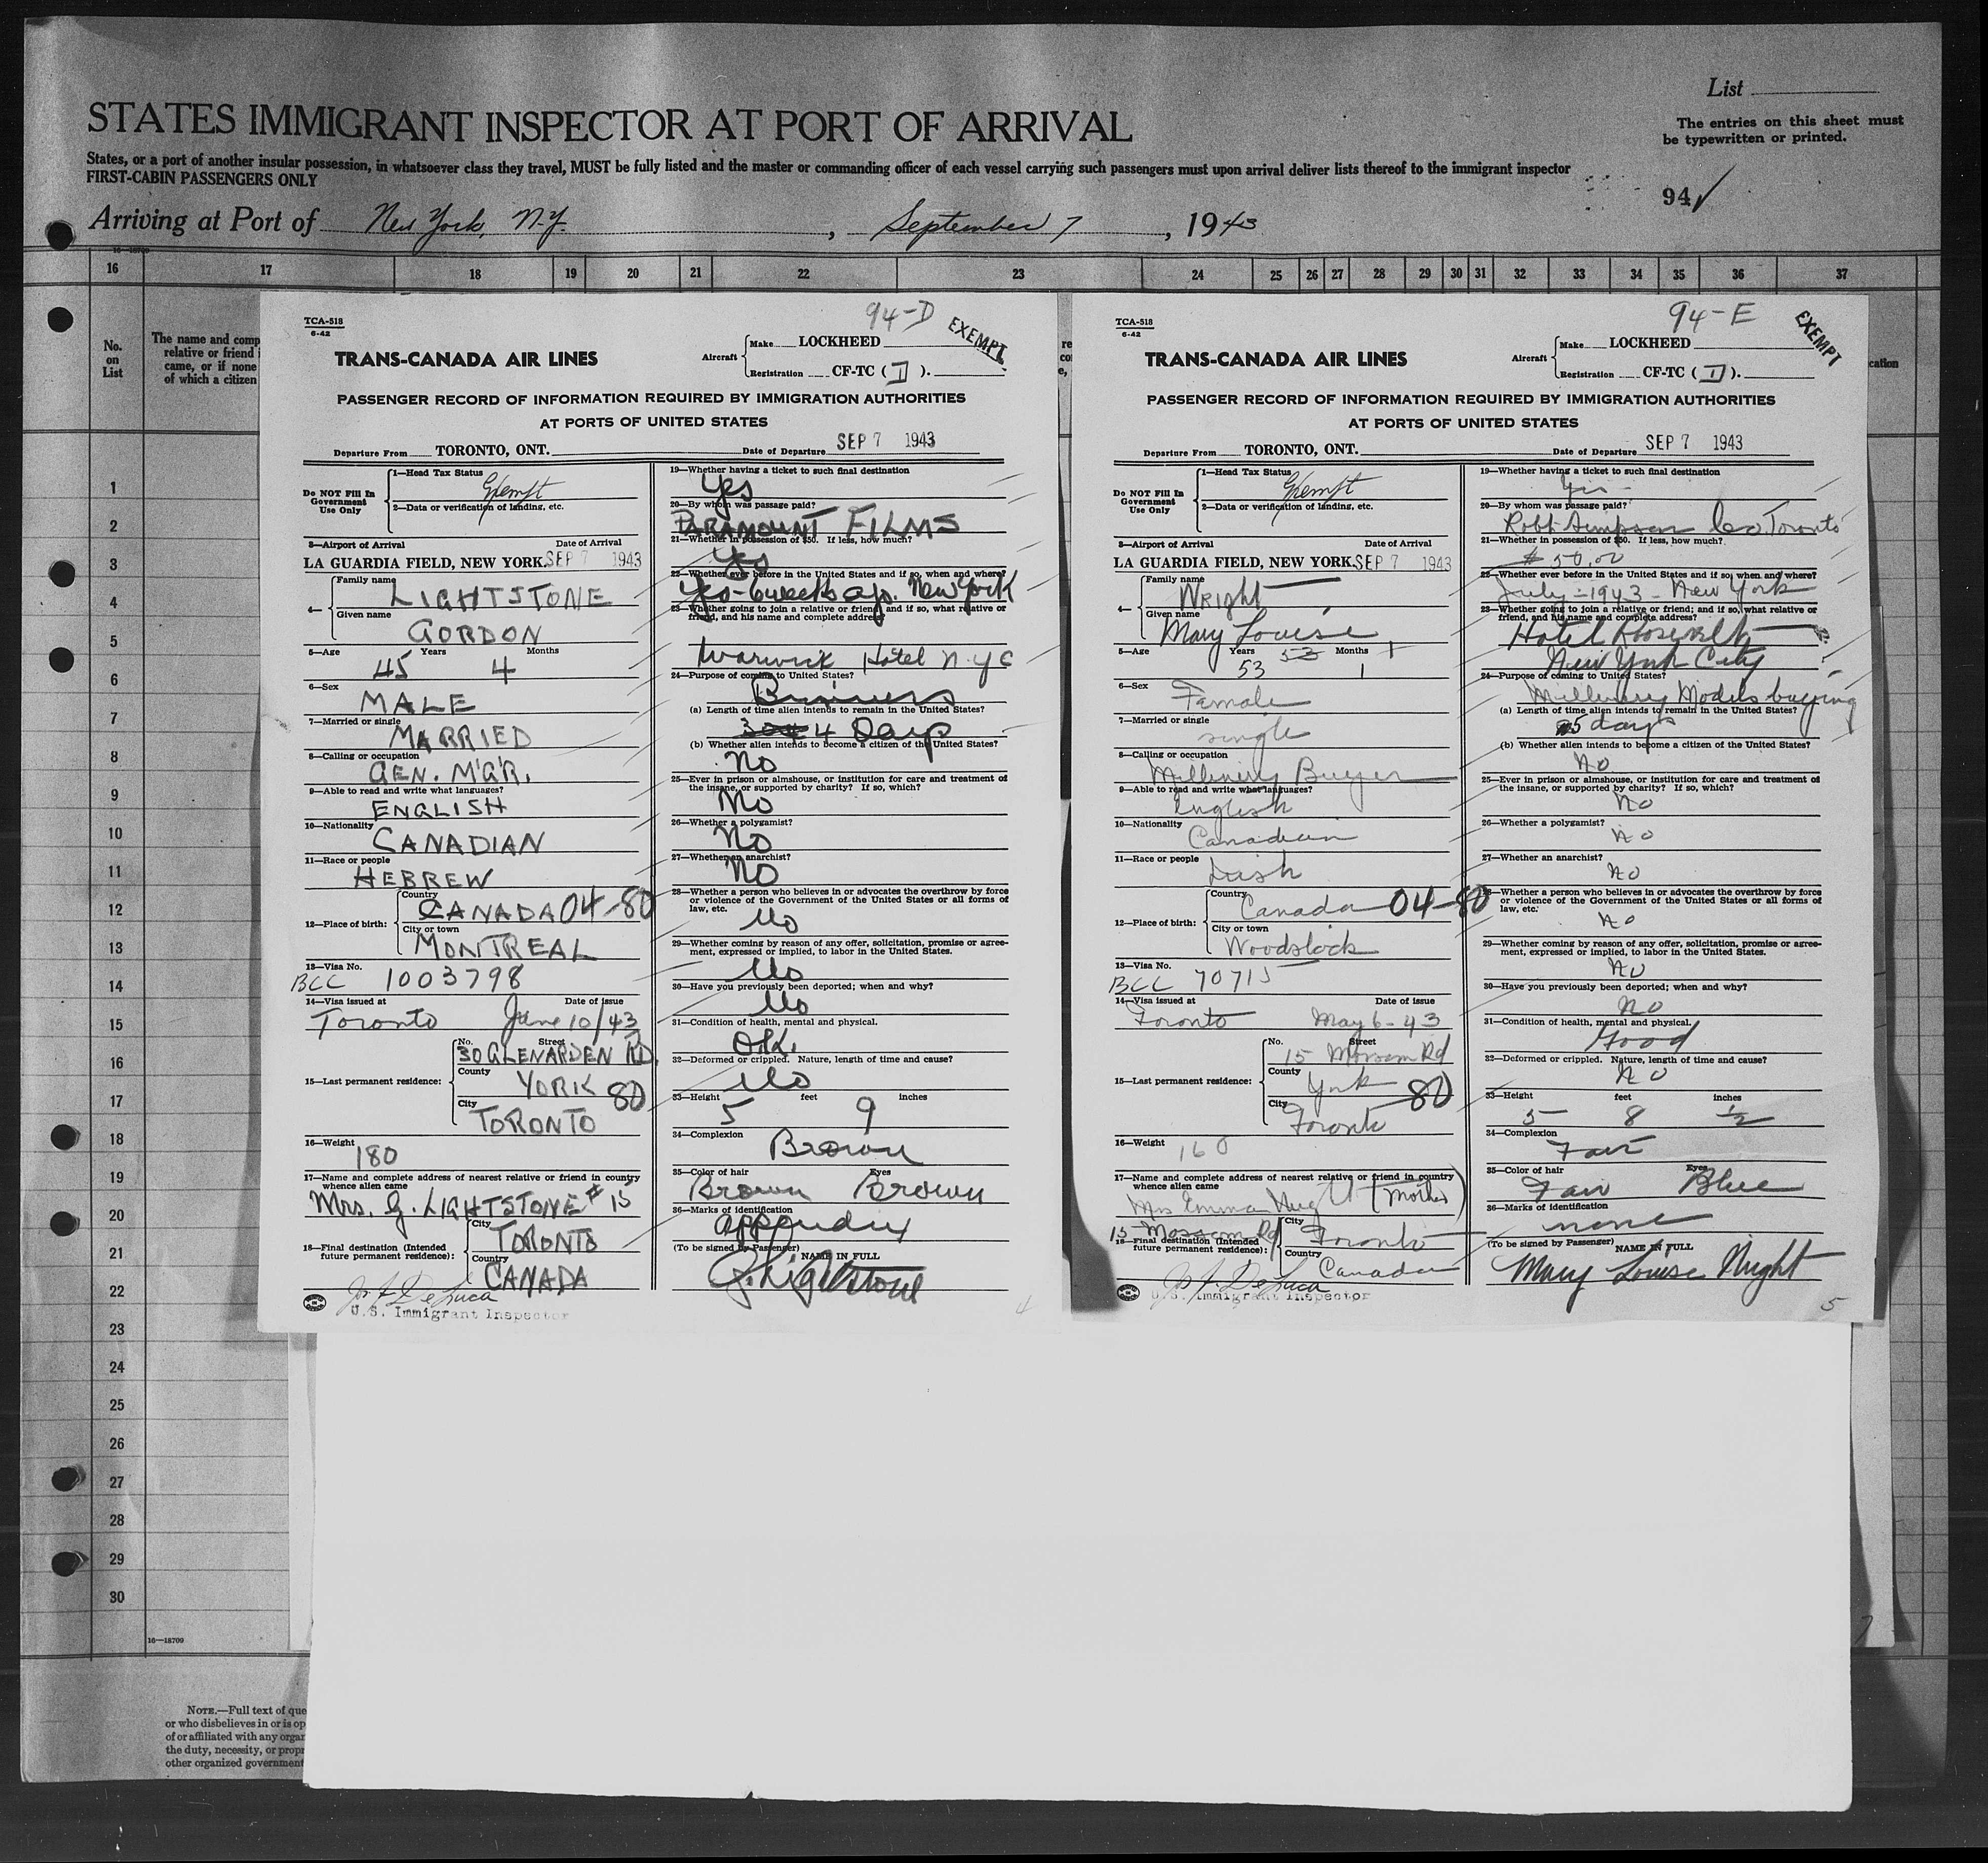 List
STATES IMMIGRANT INSPECTOR AT PORT OF ARRIVAL
The entries on this sheet must
be typewritten or printed.
States, or a port of another insular possession, in whatsoever class they travel, MUST be fully listed and the master or commanding officer of each vessel carrying such passengers must upon arrival deliver lists thereof to the immigrant inspector
FIRST-CABIN PASSENGERS ONLY
94 ✓
Arriving at Port of New York, N.Y. , September 7 , 1943
16 17 18 19 20 21 22 23 24 25 26 27 28 29 30 31 32 33 34 35 36 37
No.
on
List
The name and comp
relative or friend
came, or if none
of which a citizen
cation
1
2
3
4
5
6
7
8
9
10
11
12
13
14
15
16
17
18
19
20
21
22
23
24
25
26
27
28
29
30
16—18709
NOTE.—Full text of que
or who disbelieves in or is op
of or affiliated with any organ
the duty, necessity, or propr
other organized government
94-D
EXEMPT
TCA-518
6-42
TRANS-CANADA AIR LINES
Aircraft
Make LOCKHEED
Registration CF-TC ( I ).
PASSENGER RECORD OF INFORMATION REQUIRED BY IMMIGRATION AUTHORITIES
AT PORTS OF UNITED STATES
Departure From TORONTO, ONT. Date of Departure SEP 7 1943
Do NOT Fill In
Government
Use Only
1—Head Tax Status
Exempt
2—Data or verification of landing, etc.
3—Airport of Arrival Date of Arrival
LA GUARDIA FIELD, NEW YORK. SEP 7 1943
4—
Family name
LIGHTSTONE
Given name
GORDON
5—Age Years Months
45 4
6—Sex
MALE
7—Married or single
MARRIED
8—Calling or occupation
GEN. M'G'R.
9—Able to read and write what languages?
ENGLISH
10—Nationality
CANADIAN
11—Race or people
HEBREW
12—Place of birth:
Country
CANADA 04-80
City or town
MONTREAL
13—Visa No.
BCC 1003798
14—Visa issued at Date of issue
Toronto June 10/43
15—Last permanent residence:
No. Street
30 GLENARDEN RD.
County
YORK 80
City
TORONTO
16—Weight
180
17—Name and complete address of nearest relative or friend in country
whence alien came
Mrs. G. LIGHTSTONE # 15
18—Final destination (Intended
future permanent residence):
City
TORONTO
Country
CANADA
De Luca
U.S. Immigrant Inspector
19—Whether having a ticket to such final destination
Yes
20—By whom was passage paid?
PARAMOUNT FILMS
21—Whether in possession of $50. If less, how much?
Yes
22—Whether ever before in the United States and if so, when and where?
Yes - 6 weeks ago. New York
23—Whether going to join a relative or friend; and if so, what relative or
friend, and his name and complete address?
Warwick Hotel N.Y.C
24—Purpose of coming to United States?
Business
(a) Length of time alien intends to remain in the United States?
4 Days
(b) Whether alien intends to become a citizen of the United States?
No
25—Ever in prison or almshouse, or institution for care and treatment of
the insane, or supported by charity? If so, which?
No
26—Whether a polygamist?
No
27—Whether an anarchist?
No
28—Whether a person who believes in or advocates the overthrow by force
or violence of the Government of the United States or all forms of
law, etc.
No
29—Whether coming by reason of any offer, solicitation, promise or agree-
ment, expressed or implied, to labor in the United States.
No
30—Have you previously been deported; when and why?
No
31—Condition of health, mental and physical.
O.K.
32—Deformed or crippled. Nature, length of time and cause?
No
33—Height feet inches
5 9
34—Complexion
Brown
35—Color of hair Eyes
Brown Brown
36—Marks of identification
appendix
(To be signed by Passenger) NAME IN FULL
G. Lightstone
4
94-E
EXEMPT
TCA-518
6-42
TRANS-CANADA AIR LINES
Aircraft
Make LOCKHEED
Registration CF-TC ( I ).
PASSENGER RECORD OF INFORMATION REQUIRED BY IMMIGRATION AUTHORITIES
AT PORTS OF UNITED STATES
Departure From TORONTO, ONT. Date of Departure SEP 7 1943
Do NOT Fill In
Government
Use Only
1—Head Tax Status
Exempt
2—Data or verification of landing, etc.
3—Airport of Arrival Date of Arrival
LA GUARDIA FIELD, NEW YORK. SEP 7 1943
4—
Family name
Wright
Given name
Mary Louise
5—Age Years 53 Months 1
53 1
6—Sex
Female
7—Married or single
single
8—Calling or occupation
Millinery Buyer
9—Able to read and write what languages?
English
10—Nationality
Canadian
11—Race or people
Irish
12—Place of birth:
Country
Canada 04-80
City or town
Woodstock
13—Visa No.
BCC 70715
14—Visa issued at Date of issue
Toronto May 6-43
15—Last permanent residence:
No. Street
15 Rd
County
York 80
City
Toronto
16—Weight
160
17—Name and complete address of nearest relative or friend in country
whence alien came
Mrs Emma Wright (mother)
15 Rd
18—Final destination (Intended
future permanent residence):
City
Toronto
Country
Canada
De Luca
U.S. Immigrant Inspector
19—Whether having a ticket to such final destination
Yes
20—By whom was passage paid?
Robt Simpson Co Toronto
21—Whether in possession of $50. If less, how much?
$50.00
22—Whether ever before in the United States and if so, when and where?
July-1943-New York
23—Whether going to join a relative or friend; and if so, what relative or
friend, and his name and complete address?
Hotel Roosevelt
New York City
24—Purpose of coming to United States?
Millinery Models buying
(a) Length of time alien intends to remain in the United States?
5 days
(b) Whether alien intends to become a citizen of the United States?
No
25—Ever in prison or almshouse, or institution for care and treatment of
the insane, or supported by charity? If so, which?
No
26—Whether a polygamist?
No
27—Whether an anarchist?
No
28—Whether a person who believes in or advocates the overthrow by force
or violence of the Government of the United States or all forms of
law, etc.
No
29—Whether coming by reason of any offer, solicitation, promise or agree-
ment, expressed or implied, to labor in the United States.
No
30—Have you previously been deported; when and why?
No
31—Condition of health, mental and physical.
Good
32—Deformed or crippled. Nature, length of time and cause?
No
33—Height feet inches
5 8 ½
34—Complexion
Fair
35—Color of hair Eyes
Fair Blue
36—Marks of identification
none
(To be signed by Passenger) NAME IN FULL
Mary Louise Wright
5